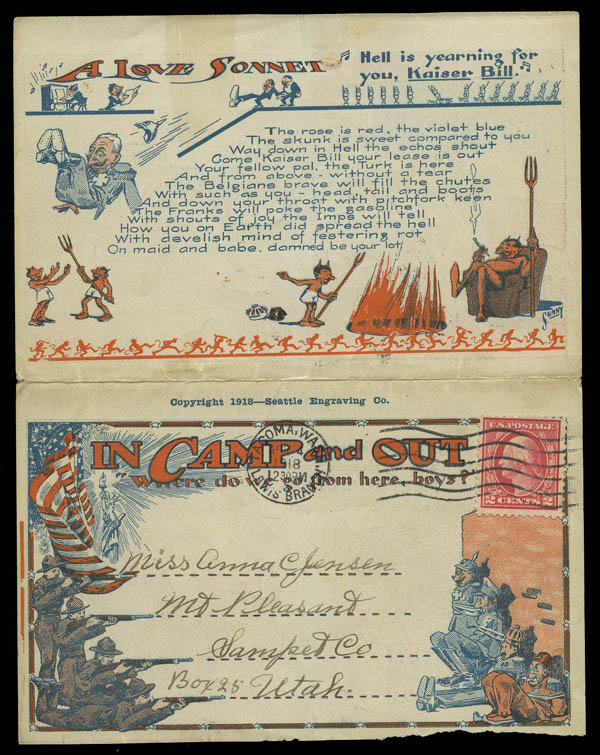 A LOVE SONNET
♫ Hell is yearning for
you, Kaiser Bill. ♫
The rose is red, the violet blue
The skunk is sweet compared to you
Way down in Hell the echos shout
Come Kaiser Bill your lease is out
Your fellow pal, the Turk is here
And from above - without a tear
The Belgians brave will fill the chutes
With such as you - head, tail and boots
And down your throat with pitchfork keen
The Franks will poke the gasoline
With shouts of joy the Imps will tell
How you on Earth did spread the hell
With develish mind of festering rot
On maid and babe, damned be your lot
SUNNY
Copyright 1918—Seattle Engraving Co.
IN CAMP and OUT
"Where do we go from here, boys?"
TACOMA, WA
1918
1230PM
LEWIS BRANCH
U.S. POSTAGE
2 CENTS 2
Miss Anna C Jensen
Mt Pleasant
Sanpet Co
Box 25 Utah.